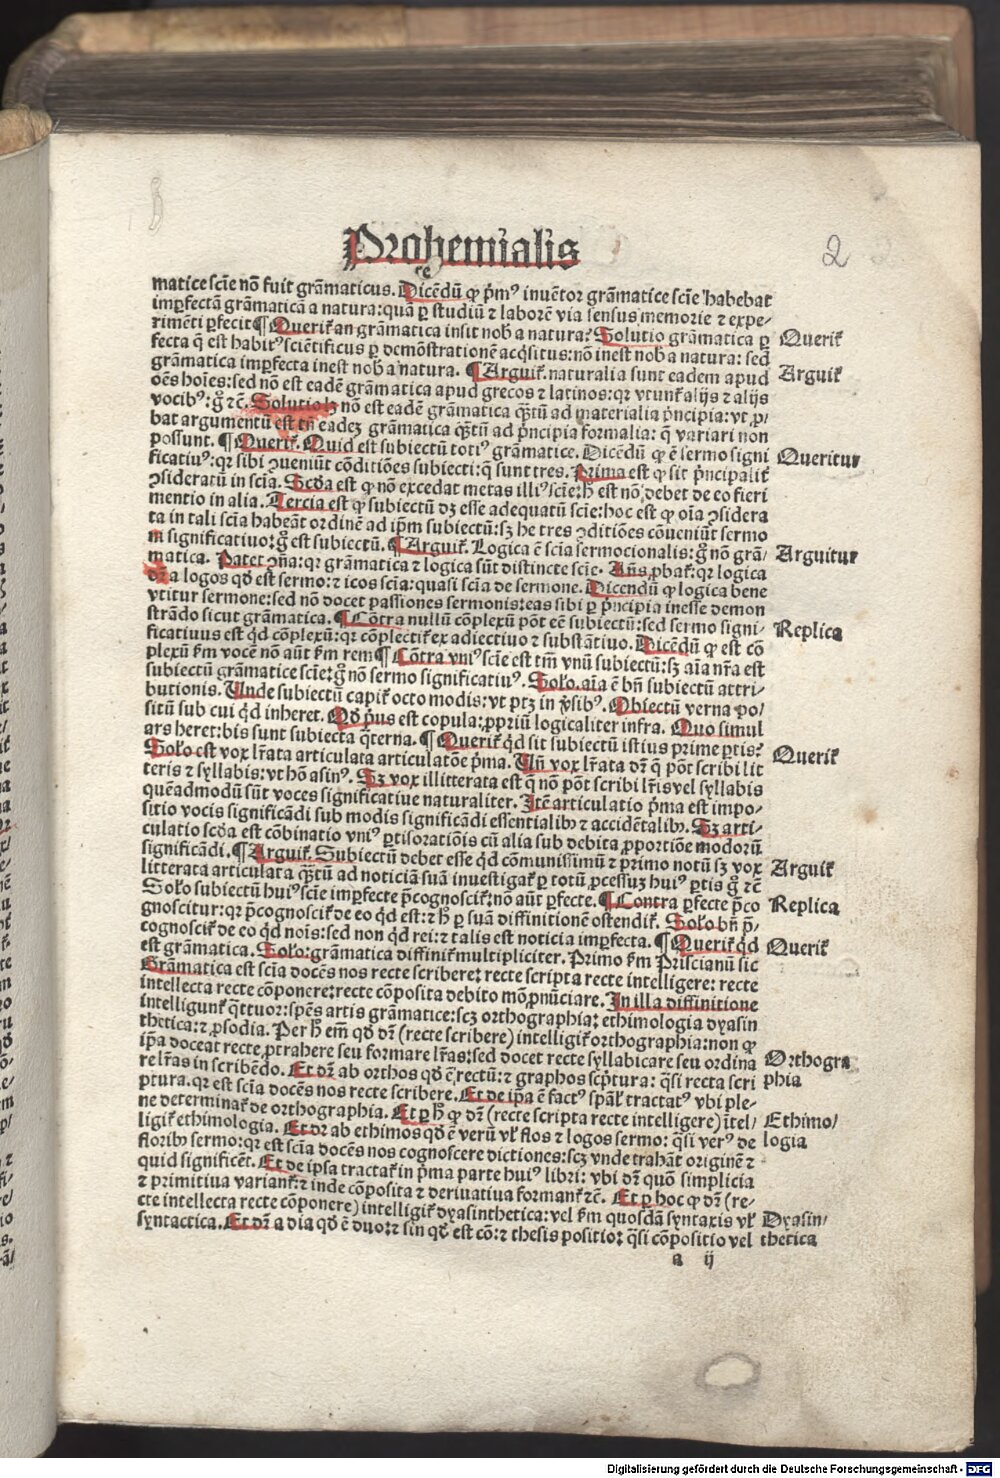 Prohemialis
2
matice scīe nō fuit grāmaticus. Dicēdū ꝙ pͥmꝰ inuētor grāmatice scīe habebat
imperfectā grāmaticā a natura: quā ꝑ studiū ⁊ laborē via sensus memorie ⁊ expe⸗
rimēti ꝑfecit ¶ Queriť an grāmatica insit nob̄ a natura? Solutio grāmatica ꝑ
Queriť
fecta q̄ est habitꝰ scientificus ꝑ demōstrationē acq̄situs: nō inest nob̄ a natura: sed
grāmatica imꝑfecta inest nob̄ a natura. ¶ Arguiť. naturalia sunt eadem apud
Arguiť
oēs hoīes: sed nō est eadē grāmatica apud grecos ⁊ latinos: qꝛ vtunť alijs ⁊ alijs
vocibꝰ: g̊ ⁊c̄. Solutio lꝫ nō est eadē grāmatica q̄ꝫtū ad materialia pͥncipia: vt ꝓ⸗
bat argumentū est tn̄ eadeꝫ grāmatica q̄ꝫtū ad pͥncipia formalia: q̄ variari non
possunt. ¶ Queriť. Quid est subiectū totiꝰ grāmatice. Dicēdū ꝙ ē sermo signi
Queritur
ficatiuꝰ: qꝛ sibi ꝯueniūt cōditiōes subiecti: q̄ sunt tres. Prima est ꝙ sit pͥncipaliť
ꝯsideratū in scīa. Scd̓a est ꝙ nō excedat metas illiꝰ scīe: hͦ est nō debet de eo fieri
mentio in alia. Tercia est ꝙ subiectū dꝫ esse adequatū scīe: hoc est ꝙ oīa ꝯsidera
ta in tali scīa habeāt ordinē ad ipm̄ subiectū: sꝫ he tres ꝯditiōes cōueniūt sermo
ni significatiuo: g̊ est subiectū. ¶ Arguiť. Logica ē scīa sermocionalis: g̊ nō grā⸗
Arguitur
matica. Patet ꝯn̄a: qꝛ grāmatica ⁊ logica sūt distincte scīe. An̄s ꝓbať: qꝛ logica
dꝛ̄ a logos qd̓ est sermo: ⁊ icos scīa: quasi scīa de sermone. Dicendū ꝙ logica bene
vtitur sermone: sed nō docet passiones sermonis: eas sibi ꝑ pͥncipia inesse demon
strādo sicut grāmatica. ¶ Cōtra nullū cōplexū pōt eē subiectū: sed sermo signi⸗
Replica
ficatiuus est qͥd cōplexū: qꝛ cōplectiť ex adiectiuo ⁊ substātiuo. Dicēdū ꝙ est cō
plexū ẜm vocē nō aūt ẜm rem ¶ Cōtra vniꝰ scīe est tm̄ vnū subiectū: sꝫ aīa nr̄a est
subiectū grāmatice scīe: g̊ nō sermo significatiuꝰ. Solo. aīa ē bn̄ subiectū attri⸗
butionis. Unde subiectū capiť octo modis: vt ptꝫ in v̓sibꝰ. Obiectū verna po⸗
situ sub cui qͥd inheret. Qd̓ pͥus est copula: ꝓpriū logicaliter infra. Quo simul
ars heret: bis sunt subiecta q̄terna. ¶ Queriť qͥd sit subiectū istius prime ꝑtis?
Queriť
Solo est vox lr̄ata articulata articulatōe pͥma. Un̄ vox lr̄ata dꝛ̄ q̄ pōt scribi lit
teris ⁊ syllabis: vt hō asinꝰ. Sꝫ vox illitterata est q̄ nō pōt scribi lr̄is vel syllabis
queadmodū sūt voces significatiue naturaliter. Itē articulatio pͥma est impo⸗
sitio vocis significādi sub modis significādi essentialibꝫ ⁊ accidētalibꝫ. Sꝫ arti⸗
culatio scd̓a est cōbinatio vniꝰ ꝑtis oratiōis cū alia sub debita ꝓportiōe modorū
significādi. ¶ Arguiť. Subiectū debet esse qͥd cōmunissimū ⁊ primo notū sꝫ vox
Arguiť
litterata articulata q̄ꝫtū ad noticiā suā inuestigať ꝑ totū ꝓcessuꝫ huiꝰ ꝑtis g̊ ⁊c̄
Solo subiectū huiꝰ scīe imꝑfecte p̄cognosciť: nō aūt ꝑfecte. ¶ Contra ꝑfecte p̄co
Replica
gnoscitur: qꝛ p̄cognosciť de eo qͥd est: ⁊ hͦ ꝑ suā diffinitionē ostendiť. Solo bn̄ p̄⸗
cognosciť de eo qͥd nois: sed non qͥd rei: ⁊ talis est noticia imꝑfecta. ¶ Queriť qͥd
Queriť
est grāmatica. Solo: grāmatica diffiniť multipliciter. Primo ẜm Priscianū sic
Grāmatica est scīa docēs nos recte scribere: recte scripta recte intelligere: recte
intellecta recte cōponere: recte cōposita debito mō ꝓnūciare. In illa diffinitione
intelligunť q̄ttuor: spēs artis grāmatice: scꝫ orthographia: ethimologia dyasin
thetica: ⁊ ꝓsodia. Per hͦ em̄ qd̓ dꝛ̄ (recte scribere) intelligiť orthographia: non ꝙ
ipa doceat recte ꝓtrahere seu formare lr̄as: sed docet recte syllabicare seu ordina
re lr̄as in scribēdo. Et dꝛ̄ ab orthos qd̓ ē rectū: ⁊ graphos scp̄tura: q̄si recta scri
Orthogra
phia
ptura. qꝛ est scīa docēs nos recte scribere. Et de ipā ē factꝰ spāľ tractatꝰ vbi ple⸗
ne determinať de orthographia. Et ꝑ hͦ ꝙ dꝛ̄ (recte scripta recte intelligere) ītel⸗
Ethimo⸗
logia
ligiť ethimologia. Et dꝛ̄ ab ethimos qd̓ ē verū vľ flos ⁊ logos sermo: q̄si verꝰ de
floribꝫ sermo: qꝛ est scīa docēs nos cognoscere dictiones: scꝫ vnde trahāt originē ⁊
quid significēt. Et de ipsa tractať in pͥma parte huiꝰ libri: vbi dꝛ̄ quō simplicia
⁊ primitiua varianť: ⁊ inde cōposita ⁊ deriuatiua formanť ⁊c̄. Et ꝑ hoc ꝙ dꝛ̄ (re⸗
cte intellecta recte cōponere) intelligiť dyasinthetica: vel ẜm quosdā syntaxis vľ
Dyasin⸗
thetica
syntactica. Et dꝛ̄ a dia qd̓ ē duo: ⁊ sin qd̓ est cō: ⁊ thesis positio: q̄si cōpositio vel
a ij
Digitalisierung gefördert durch die Deutsche Forschungsgemeinschaft - DFG